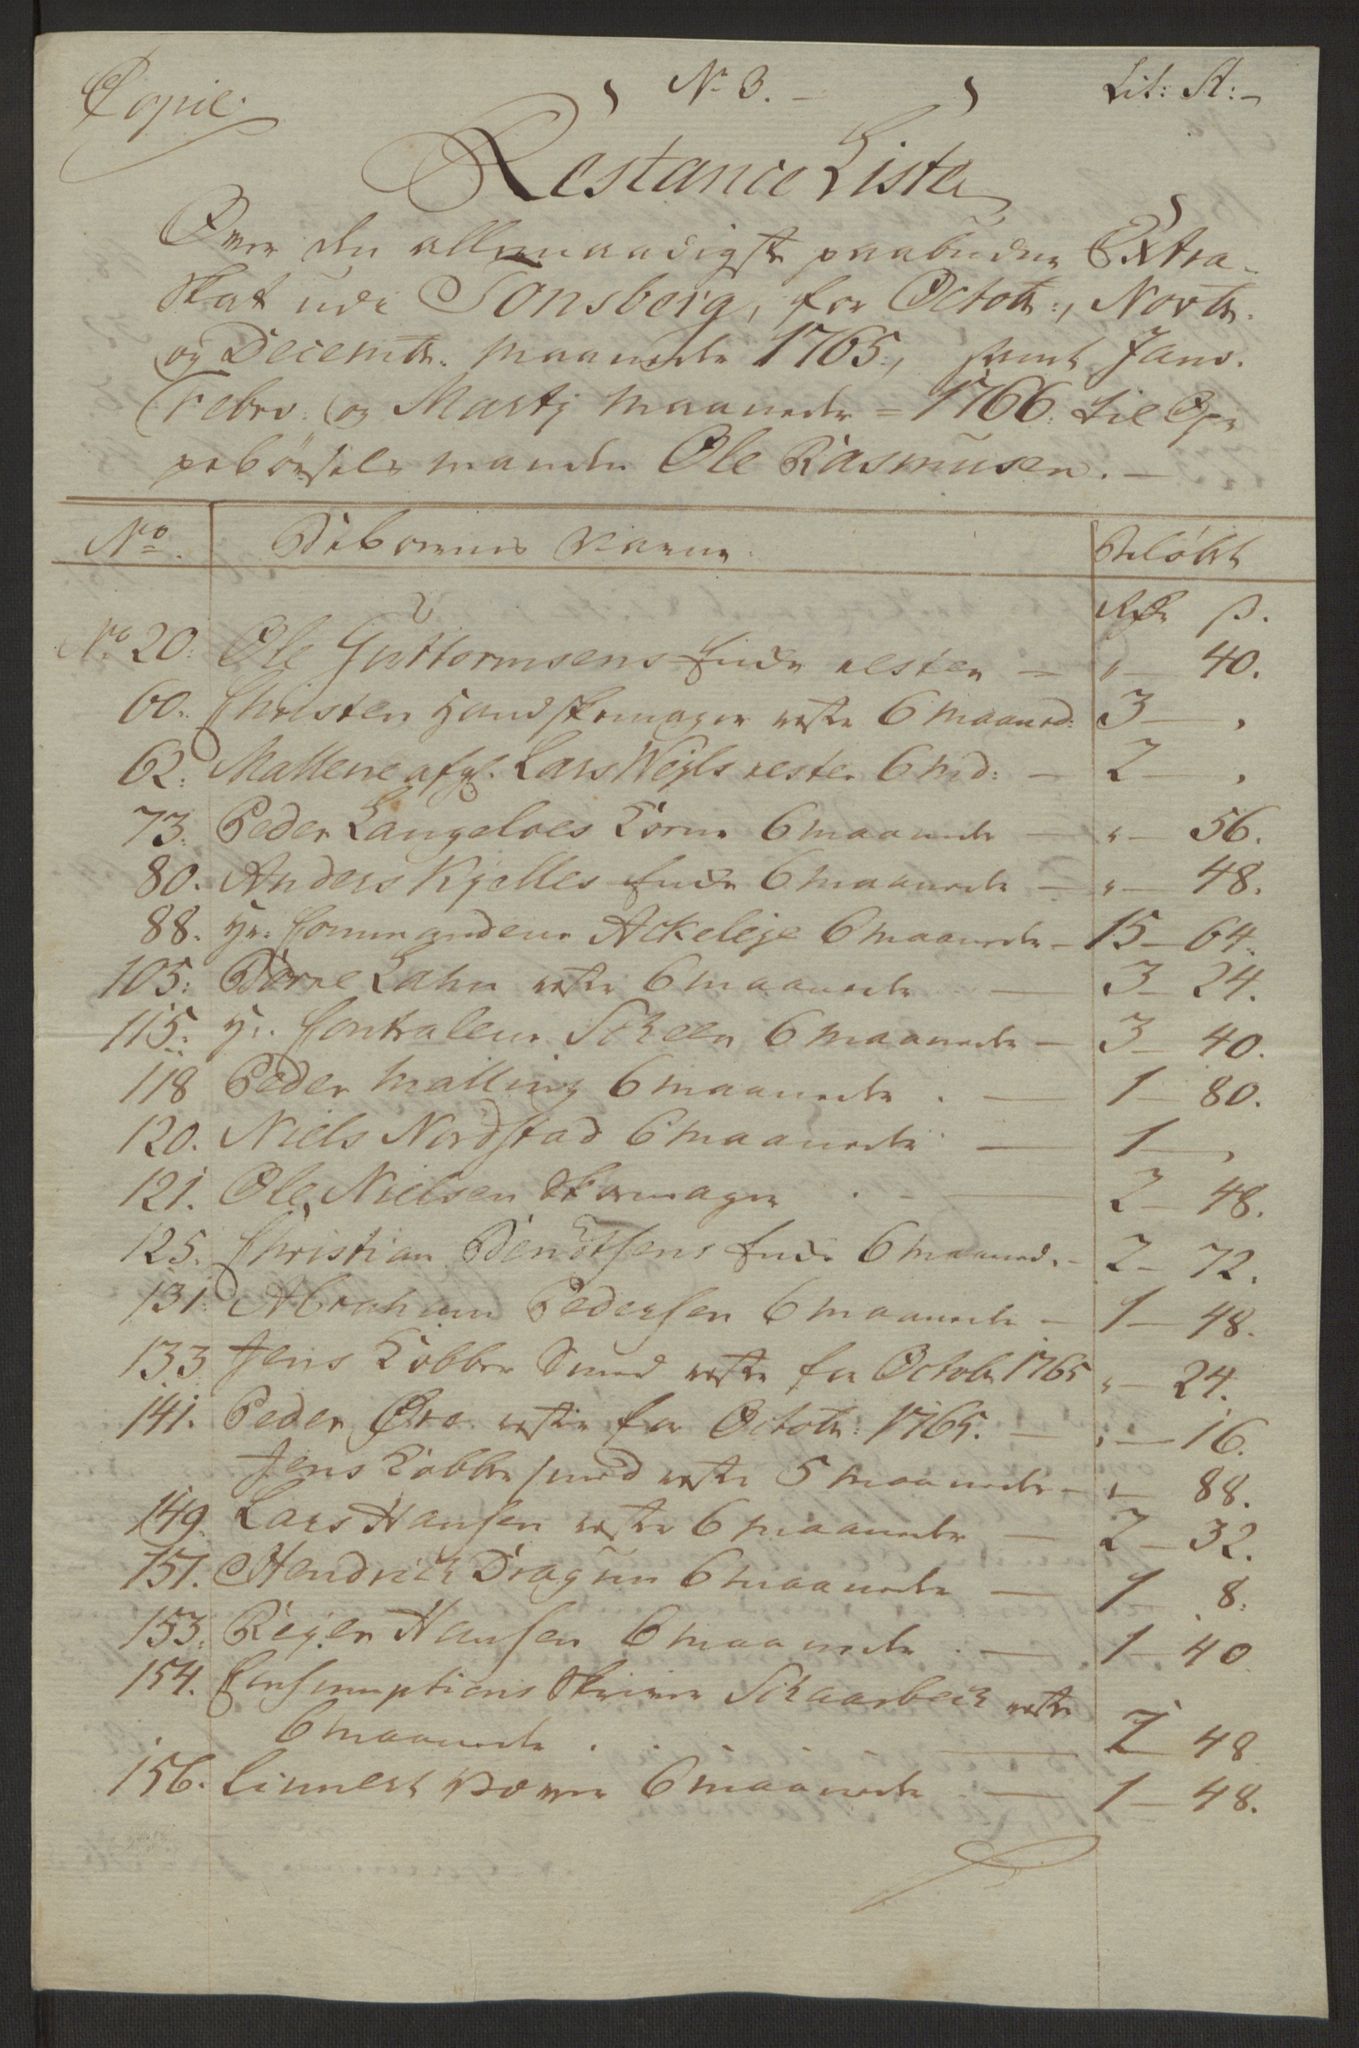 Copie.
No 3. Lit: A:
Restance Liste
Over den allernaadigst paabudne Extra-
Skat udi Tønsberg, for Octobr:, Novbr.
og Decembr. Maaneder 1765, samt Janv.
Febrv: og Martj Maaneder 1766. til Op-
pebørsels manden Ole Rasmusen.
No. Debitorernes Navne. Beløbet
Rdr ß.
No 20. Ole Guttormsens Enke rester — " — 40.
60. Christen Handskemager rester 6 maaned: 3 — "
62. Mallene afgl. Lars Wejls rester 6 md: — 2 — "
73. Peder Langeloes Børn 6 maaneder — " — 56.
80. Anders Kjelles Enke 6 maaneder — " — 48.
88. Hr. Commandeur Ackeleje 6 maaneder — 15 — 64.
105. Børre Lahn rester 6 maaneder — 3 — 24.
115. Hr. Contralleur Scheen 6 maaneder — 3 — 40.
118 Peder Malling 6 maaneder . — 1 — 80.
120. Niels Nordstad 6 maaneder — 1 — "
121. Ole Nielsen Skoemager . — 2 — 48.
125. Christian Bendtsens Enke 6 maaned. — 2 — 72.
131. Abraham Pedersen 6 maaneder — 1 — 48.
133. Jens Kobber Smed rester for Octobr 1765 " — 24.
141. Peder Øre rester for Octobr: 1765. — " — 16.
Jens Kobbersmed rester 5 maaneder — " — 88.
149. Lars Hansen rester 6 maaneder — 2 — 32.
151. Hendrich Dragun 6 maaneder — 1 8.
153. Rejer Hansen 6 maaneder . — 1 — 40
154. Consumptions Skriver Schaarbech rester
6 maaneder . . — 7 — 48
156. Linnert 6 maaneder — 1 — 48.